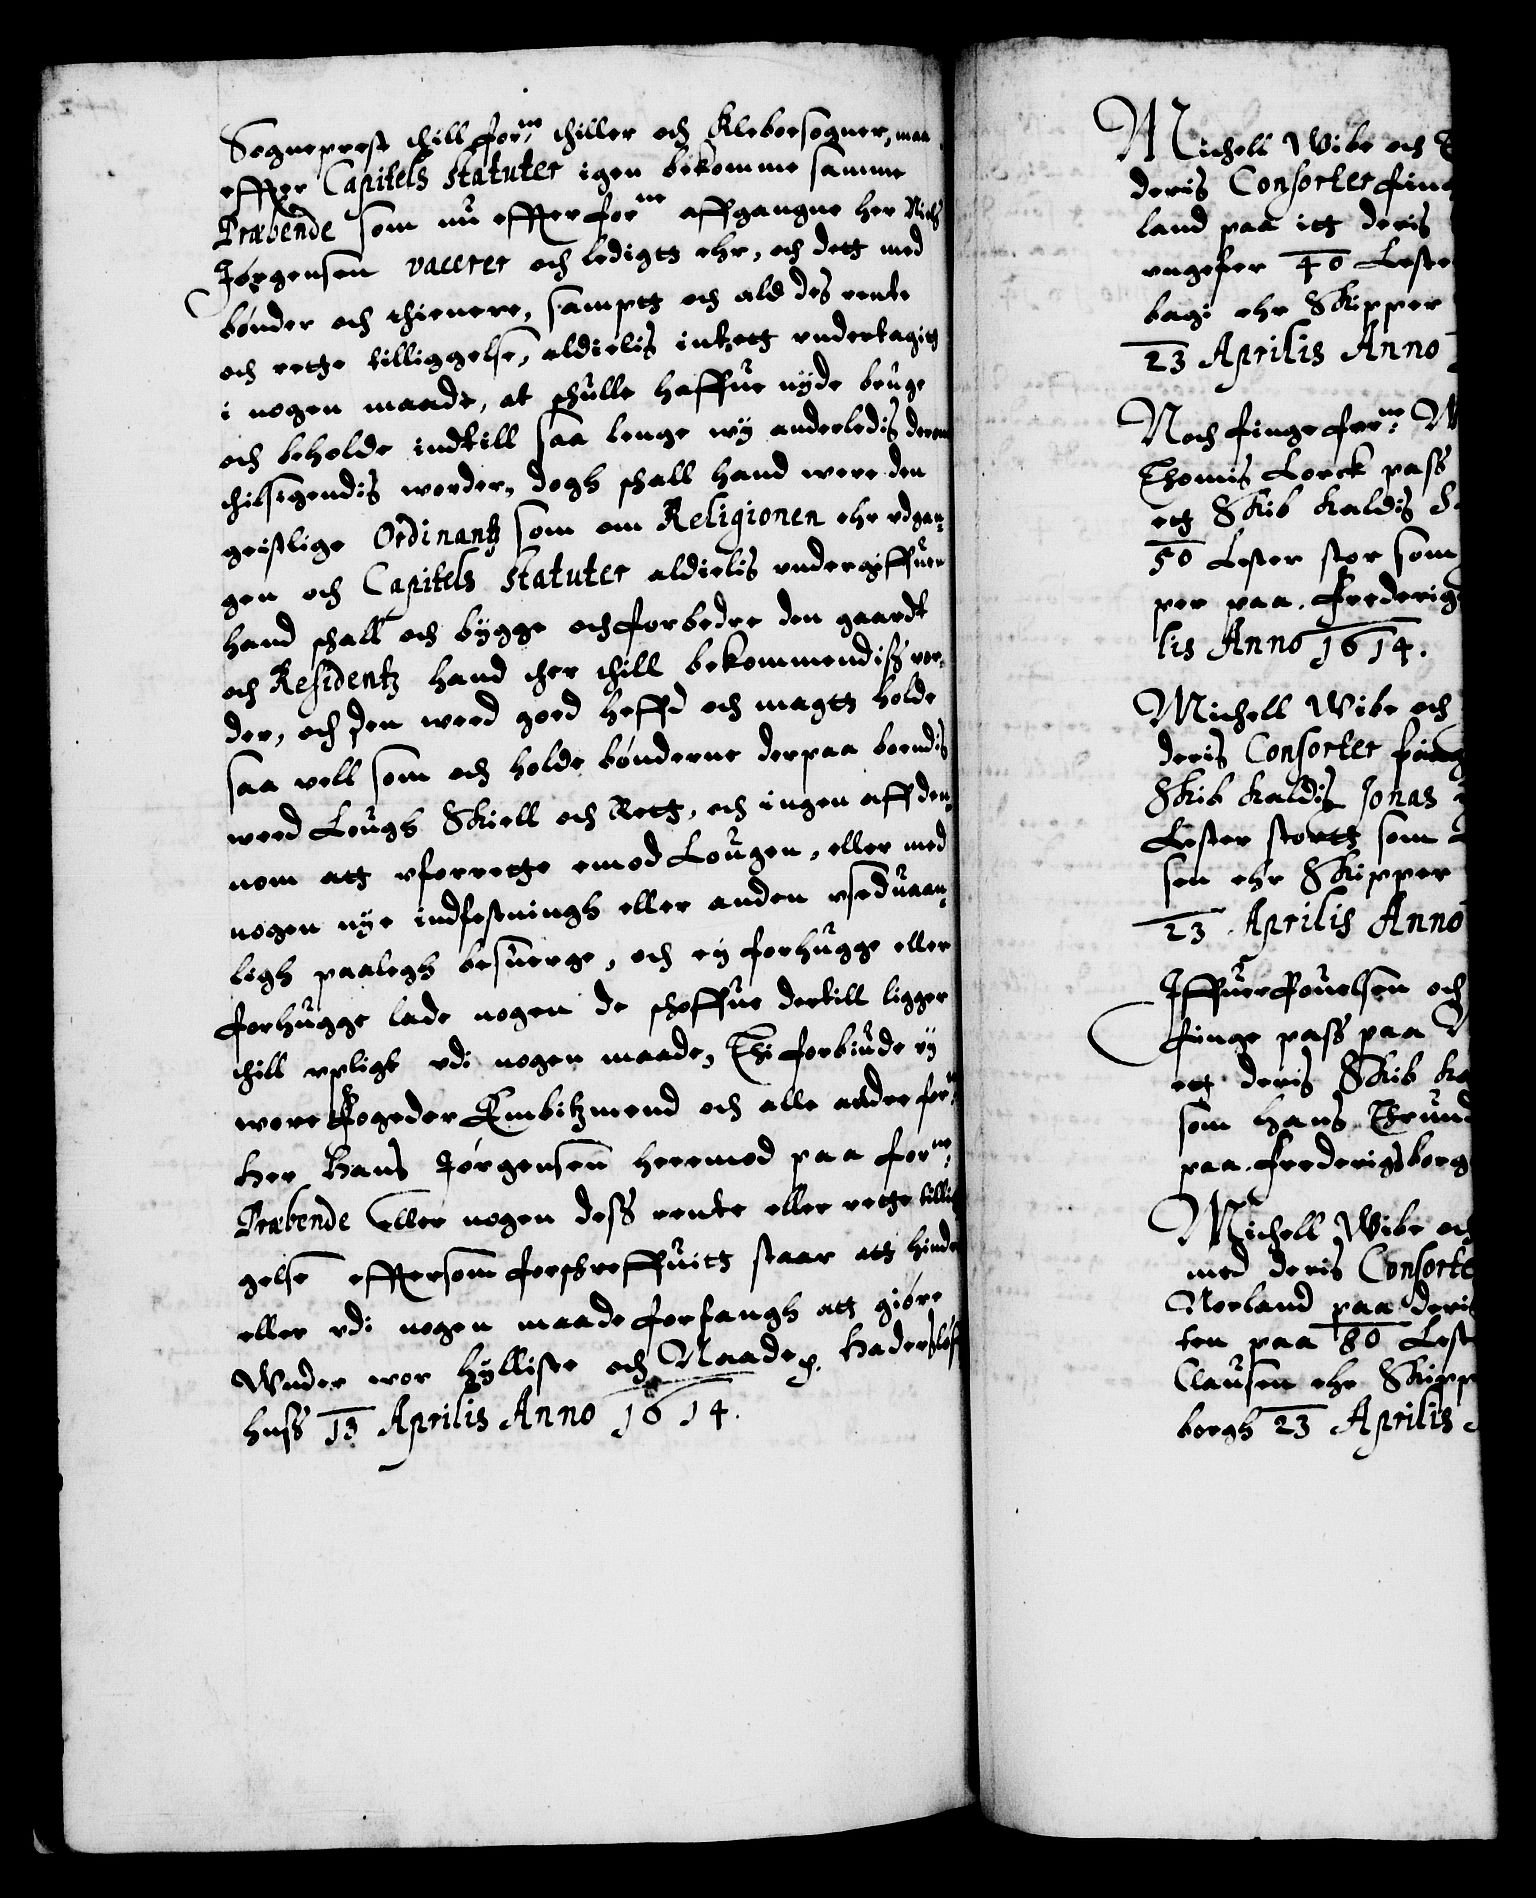 Sogneprest thill forne thiller och Kleboesogner, maa
effter Capitels Statuter igen bekomme samme
Præbende som nu effter forne affgangne her Niels
Jørgensen vacerer och ledigtt ehr, och dett med
bønder och thienere, samptt och ald des rente
och rette tilliggelse, aldielis inthett undertagitt
i nogen maade, at schulle haffue nyde beuge
och beholde indtill saa lenge wy anderledis derom
thilsigendis worder, dogh schall hand were den
geistlige Ordinantz som om Religionen ehr udgan¬
gen och Capitels Statuter aldielis undergiffuen
hand schall och bygge och forbedre den gaardt
och Residentz hand ther thill bekommendiss wor¬
der, och den weed goed heffd och magtt holde
saa vell som och holde bønderne derpaa boendis
weed Lough Skiell och Rett, och ingen aff den¬
nom att uforrette emod Lougen, eller med
nogen nye indfestningh eller anden usedvaan¬
ligh paalegh besverge, och ey forhugge eller
forhugge lade nogen de schoffue dertill ligger
thill upligt udi nogen maade, Thi forbiude wy
wore fogeder Embitzmend och alle andre forne
Her Hans Jørgensen heremod paa forne
Præbende eller nogen dess rente eller rette tillig
gelse effttersom forschreffuitt staar att hinde
eller udi nogen maade forfangh att giøre
Wnder wor hylliste och Naade p. Hadersløf
huss 13 Aprilis Anno 1614.
Michell Wibe och
deris Consorter fing
land paa itt deris
ungefer 40 Leste
bagi ehr Skipper
23 Aprilis Anno
Noch finge forne W
Thomis Lorck pass
ett Skib kaldis S.
50 Lester stor som
per paa. Frederig
lis Anno 1614.
Michell Wibe och
deris Consorter fing
Skib kaldis Jonas
Lester stortt som
sen ehr Skipper
23 Aprilis Anno
Iffuer Pouelsen och
finge pass paa
ett deris Skib ka
som Hans Trund
paa. Frederigsborg
Michell Wibe och
med deris Consorte
Norland paa deris
ten paa 80 Lest
Clausen ehr Skipp
borgh 23 Aprilis